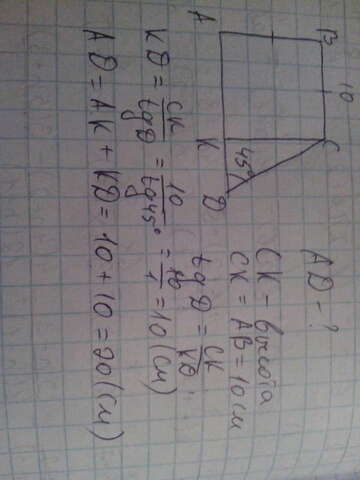 A B
10
K C
45°
D
AD - ?
CK - высота
CK = AB = 10 см
tg D = CK / KD
KD = CK / tg D = 10 / tg 45° = 10 / 1 = 10 (см)
AD = AK + KD = 10 + 10 = 20 (см)